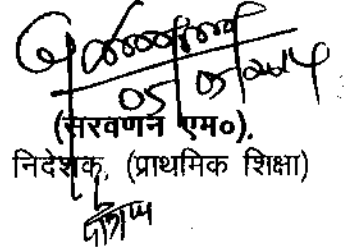 05 05 2014
(सरवणन एम०),
निदेशक, (प्राथमिक शिक्षा)